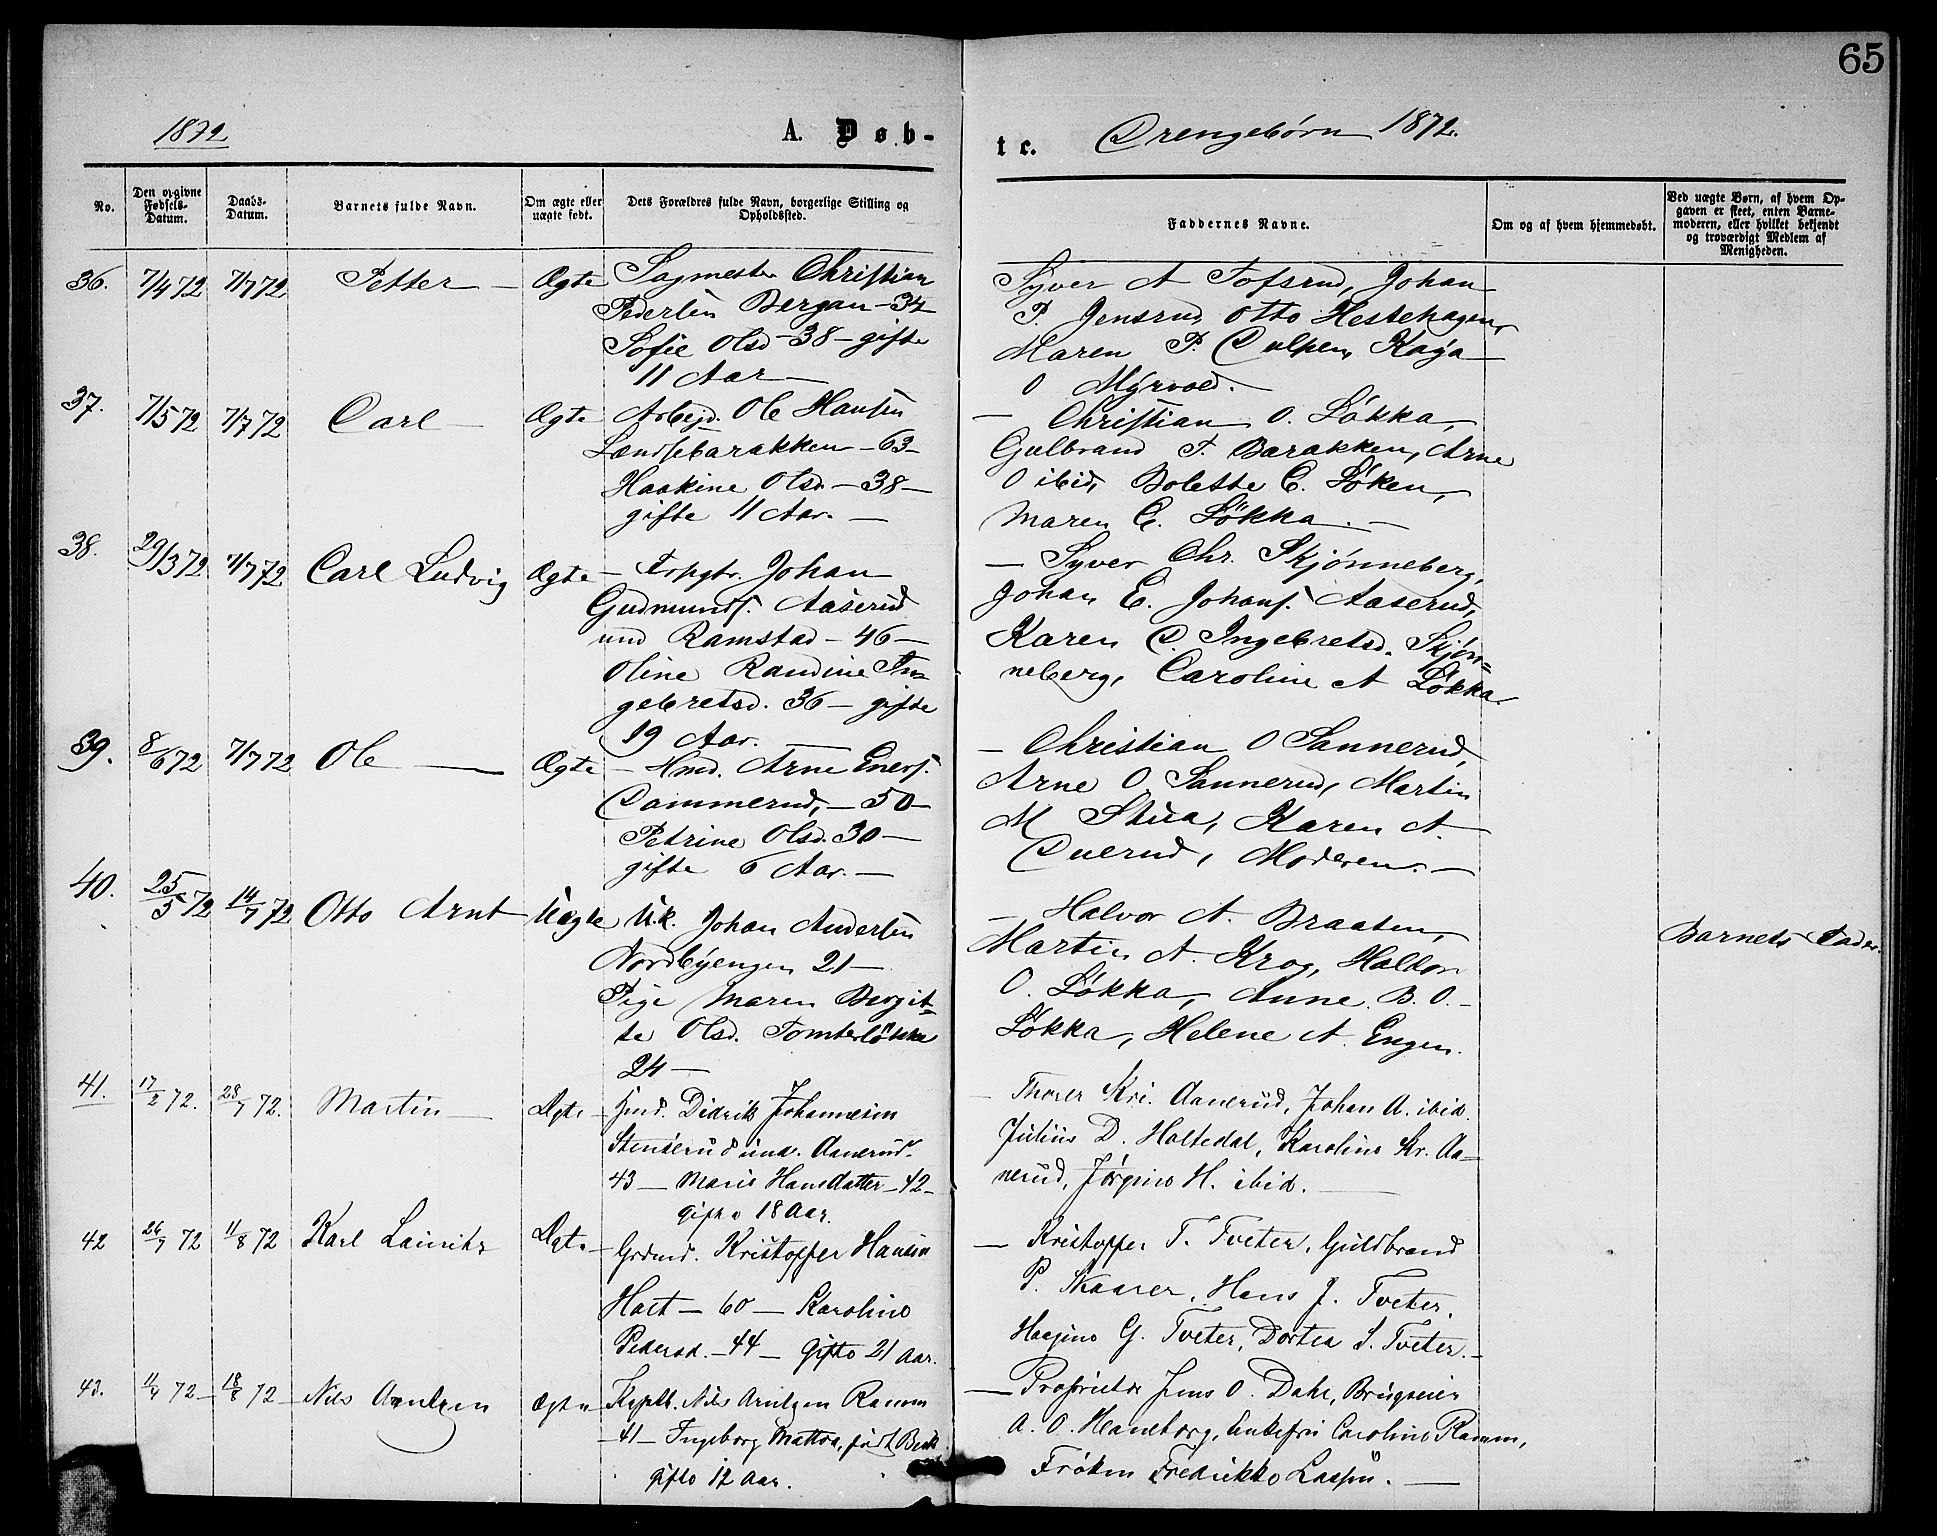 65
1872
A. Døb-
te. Drengebørn 1872.
No.
Den opgivne Fødsels-Datum.
Daabs-Datum.
Barnets fulde Navn.
Om ægte eller uægte født.
Dets Forældres fulde Navn, borgerlige Stilling og Opholdssted.
Faddernes Navne.
Om og af hvem hjemmedøbt.
Ved uægte Børn, af hvem Opgaven er skeet, enten Barnemoderen, eller hvilket bekjendt og troværdigt Medlem af Menigheden.
36. 7/4 72 7/7 72 Petter — Ægte Sagmester Christian
Pedersen Bergan — 34
Sofie Olsd — 38 — gifte
11 Aar —
Syver A Tofsrud, Johan
P. Jensrud, Otto Hestehagen,
Maren P. Dulpen, Kaja
O Myrvold. —
37. 7/5 72 7/7 72 Carl — Ægte Arbejd. Ole Hansen
Lændsebarakken — 63 —
Haakine Olsd. — 38 —
gifte 11 Aar. —
— Christian O. Løkka,
Gulbrand T. Barakken, Arne
O ibid, Bolette C. Løken,
Maren C. Løkka. —
38. 29/3 72 7/7 72 Carl Ludvig Ægte — Johan
Gudmunds. Aaserud
und Ramstad — 46 —
Oline Randine In-
gebretsd. 36 — gifte
19 Aar. —
— Syver Chr. Skjønneberg,
Johan E. Johans. Aaserud,
Karen O. Ingebretsd. Skjøn-
neberg, Caroline A Løkka
39. 8/6 72 7/7 72 Ole — Ægte — Hmd. Arne Eners.
Dammerud, — 50 —
Petrine Olsd. 30 —
gifte 6 Aar. —
— Christian O Sannerud,
Arne O Sannerud, Martin
M Stua, Karen A
Duerud, Moderen. —
40. 25/5 72 14/7 72 Otto Arnt Uægte U.k. Johan Andersen
Nordbyengen 21 —
Pige Maren Bergit-
te Olsd. Tomterløkka
24 —
— Halvor A. Braaten,
Martin A. Krog, Haldor
O. Løkka, Anne B. O. -
Løkka, Helene A. Engen.
Barnets Fader.
41. 17/2 72. 28/7 72. Martin — Ægte — Hmd. Didrik Johannesen
Stenserud und. Aanerud.
43 — Marie Hansdatter — 42 —
gifte 18 Aar.
— Thorer Kri. Aanerud, Johan A. ibid.
Julius D. Holtedal, Karoline Kr. Aa-
nerud, Jørgine H. ibid. —
42 26/7 72 11/8 72 Karl Lauritz Ægte — Grdmd. Kristoffer Hansen
Holt — 60 — Karoline
Pedersd. — 44 — gifte 21 Aar.
— Kristoffer T. Tveter, Guldbrand
P. Skaarer, Hans J. Tveter.
Haagine G. Tveter, Dortea S. Tveter. —
43. 11/4 72 — 18/8 72 — Nils Arntzen Ægte Nils Arntzen Ramm
— 41 — Ingeborg Mattea, født
gifte 12 Aar.
— Proprietær Jens O. Dahl, Brugseier
A. O. Haneborg, Enkefru Caroline Ramm,
Frøken Fredrikke Lassen. —